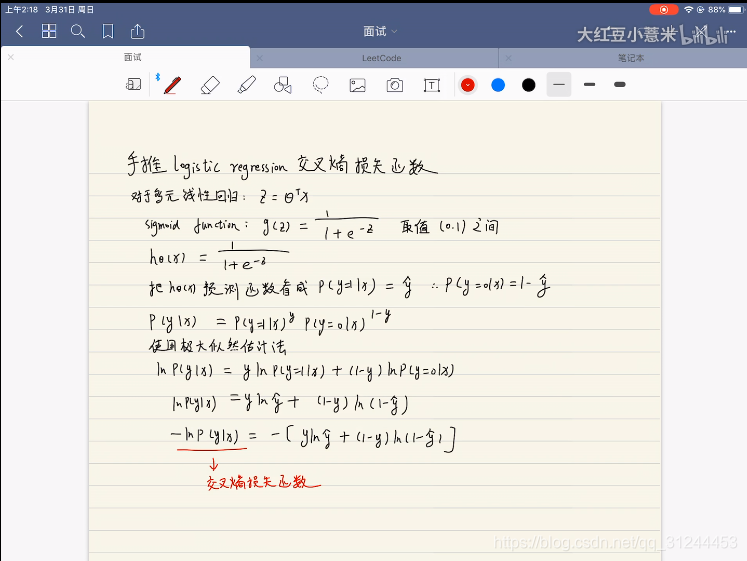 上午2:18 3月31日 周日
88%
面试
大红豆小薏米 bilibili
面试
LeetCode
笔记本
手推 logistic regression 交叉熵损失函数
对于多元线性回归: z = θᵀx
sigmoid function: g(z) = 1/(1+e^-z) 取值 (0.1) 之间
hθ(x) = 1/(1+e^-z)
把 hθ(x) 预测函数看成 P(y=1|x) = ŷ ∴ P(y=0|x) = 1-ŷ
P(y|x) = P(y=1|x)^y P(y=0|x)^1-y
使用极大似然估计法
ln P(y|x) = y ln P(y=1|x) + (1-y) ln P(y=0|x)
ln P(y|x) = y ln ŷ + (1-y) ln (1-ŷ)
-ln P(y|x) = -[ y ln ŷ + (1-y) ln (1-ŷ) ]
↓
交叉熵损失函数
https://blog.csdn.net/qq_31244453